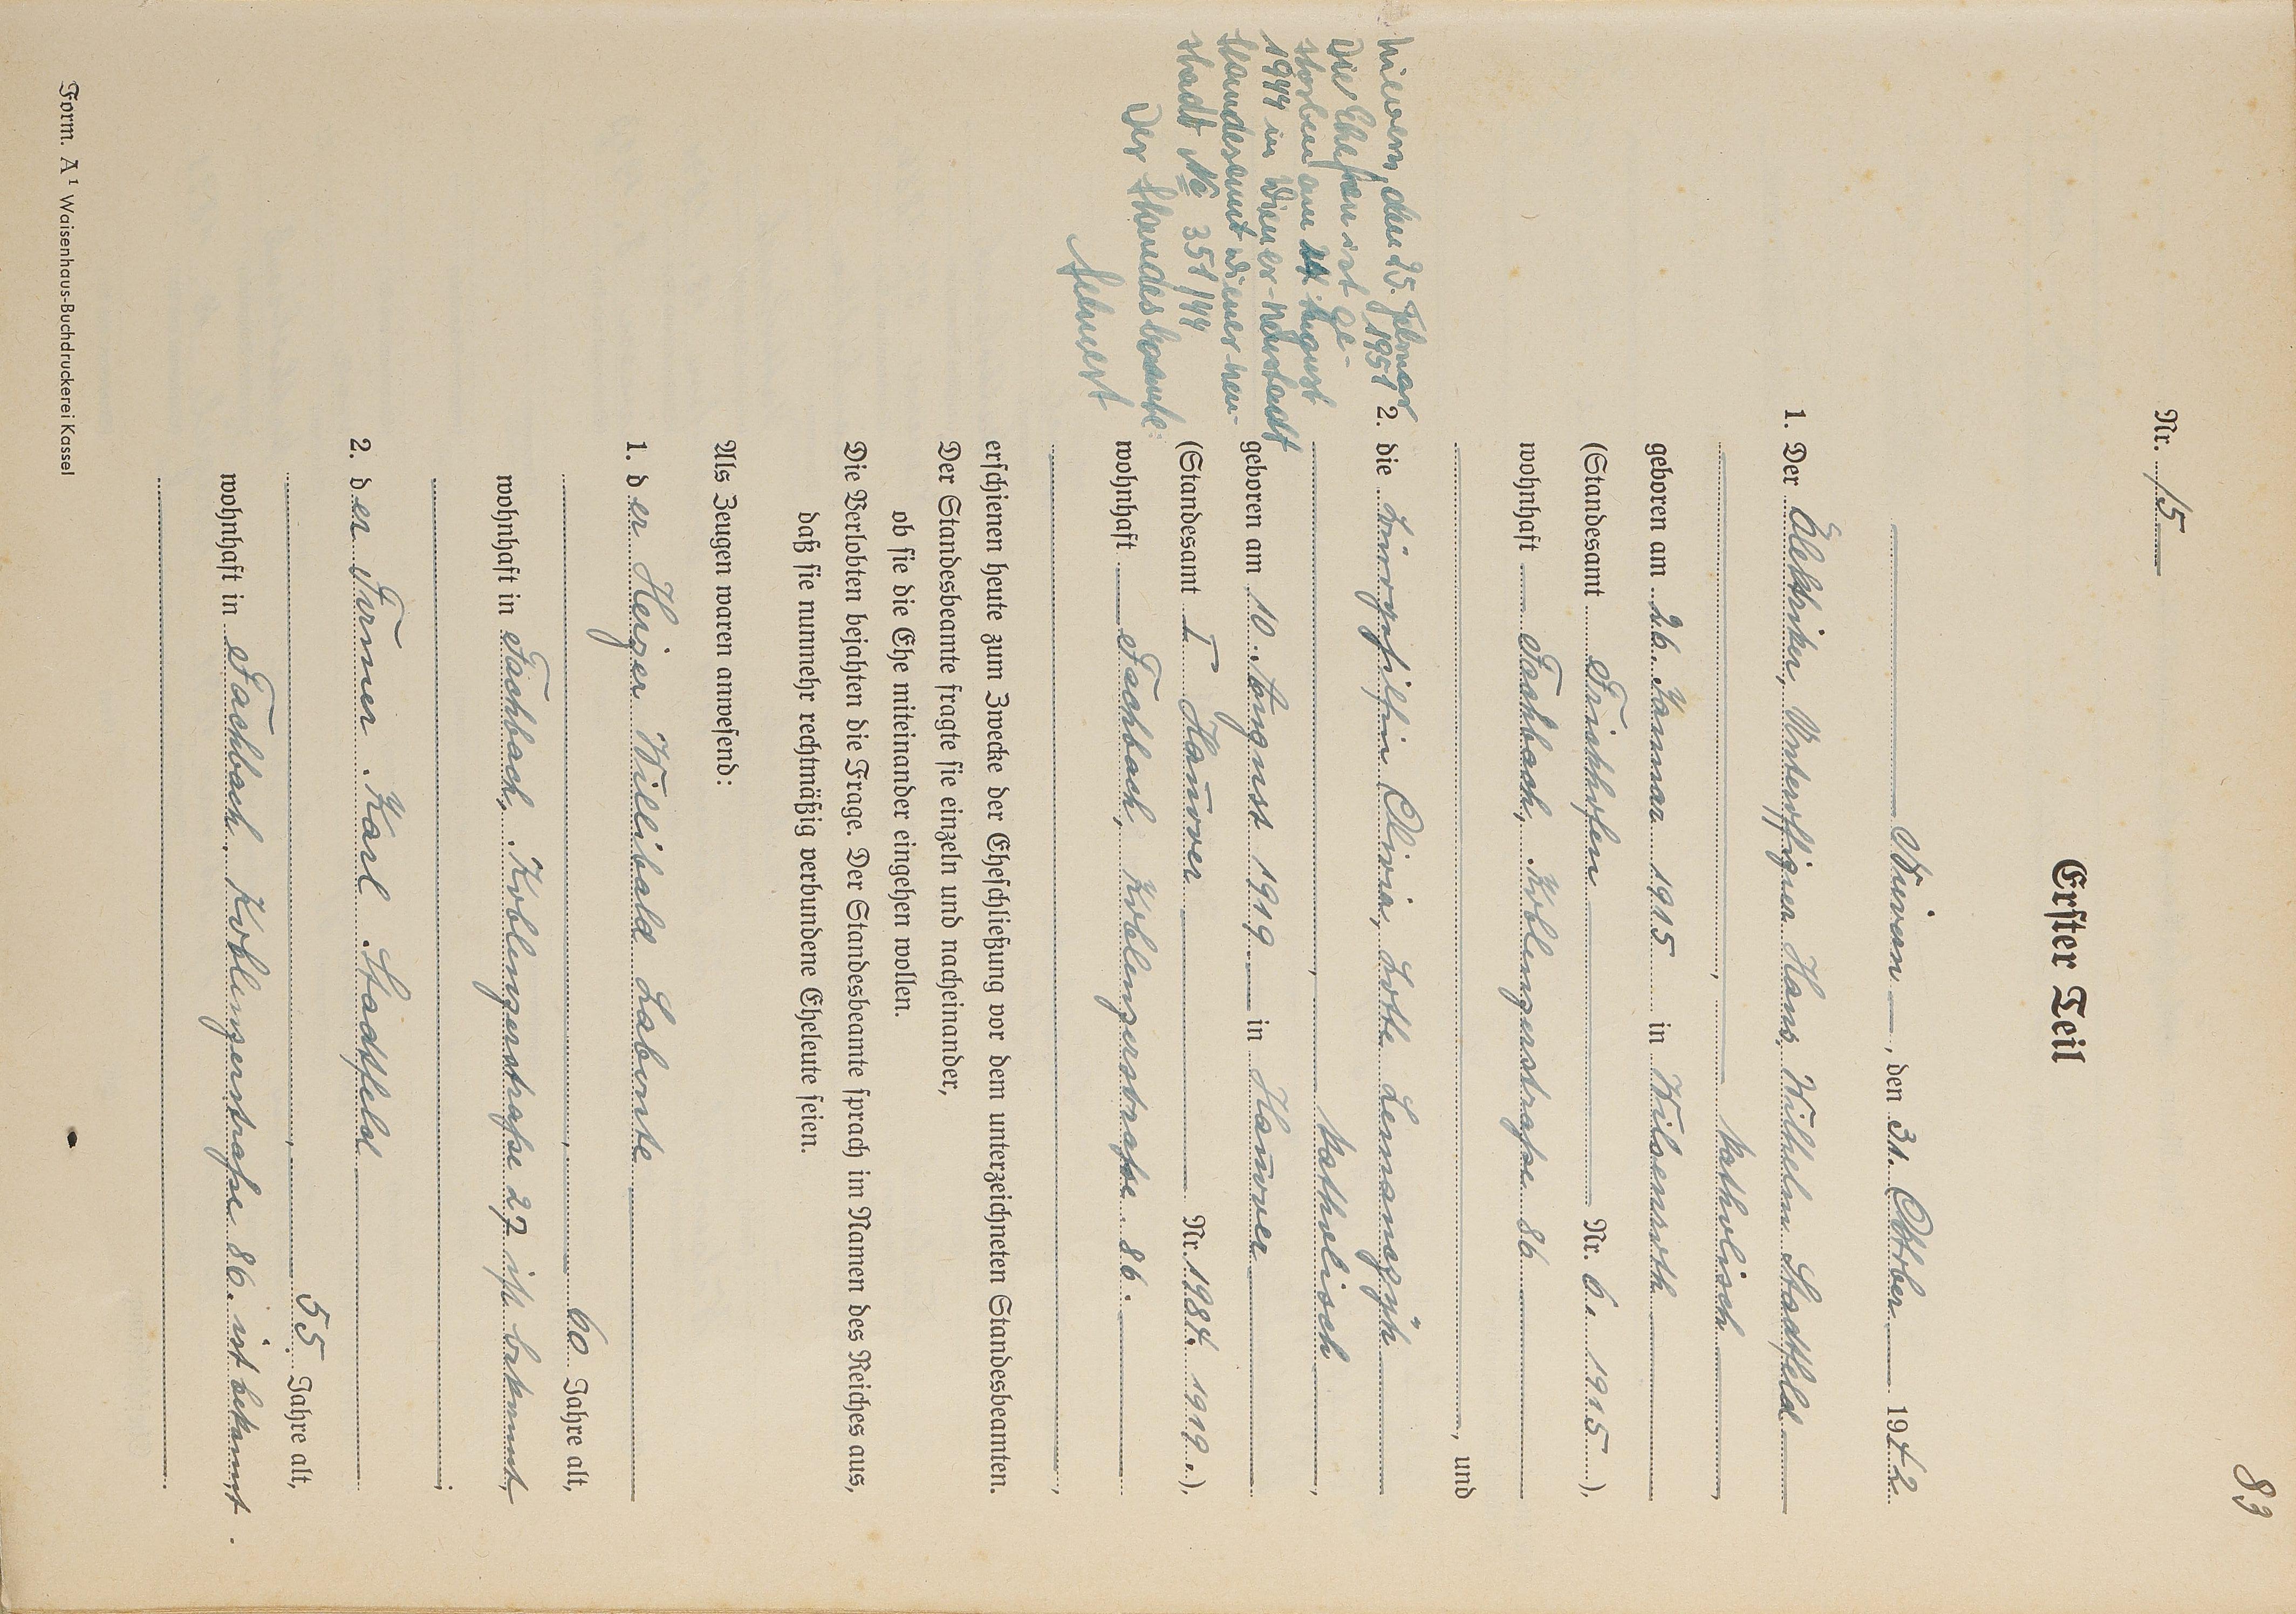 83
Nr. 15
Erster Teil
Nievern, den 31. Oktober 1942
1. Der Elektriker, Unteroffizier Hans Wilhelm Stadtfeld
, katholisch,
geboren am 26. Januar 1915 in Wilsenroth
(Standesamt Frickhofen Nr. 6. 1915),
wohnhaft Fachbach, Koblenzerstraße 86
, und
2. die Bürogehilfin Olivia, Lotte Lemanczyk
, katholisch,
geboren am 10. August 1919 in Hannover
(Standesamt I Hannover Nr. 1984. 1919.),
wohnhaft Fachbach, Koblenzerstraße 86.
,
erschienen heute zum Zwecke der Eheschließung vor dem unterzeichneten Standesbeamten.
Der Standesbeamte fragte sie einzeln und nacheinander,
ob sie die Ehe miteinander eingehen wollen.
Die Verlobten bejahten die Frage. Der Standesbeamte sprach im Namen des Reiches aus,
daß sie nunmehr rechtmäßig verbundene Eheleute seien.
Als Zeugen waren anwesend:
1. der Heizer Willibald Labonte
, 60 Jahre alt,
wohnhaft in Fachbach, Koblenzerstraße 27 ist bekannt,
;
2. der Former Karl Stadtfeld
, 55 Jahre alt,
wohnhaft in Fachbach Koblenzerstraße 86. ist bekannt.
.
Nievern, den 25. Februar
1951
Die Ehefrau ist ge-
storben am 24. August
1944 in Wiener-Neustadt
Standesamt Wiener-Neu-
stadt No 351/44
Der Standesbeamte:
Form. A¹ Waisenhaus-Buchdruckerei Kassel